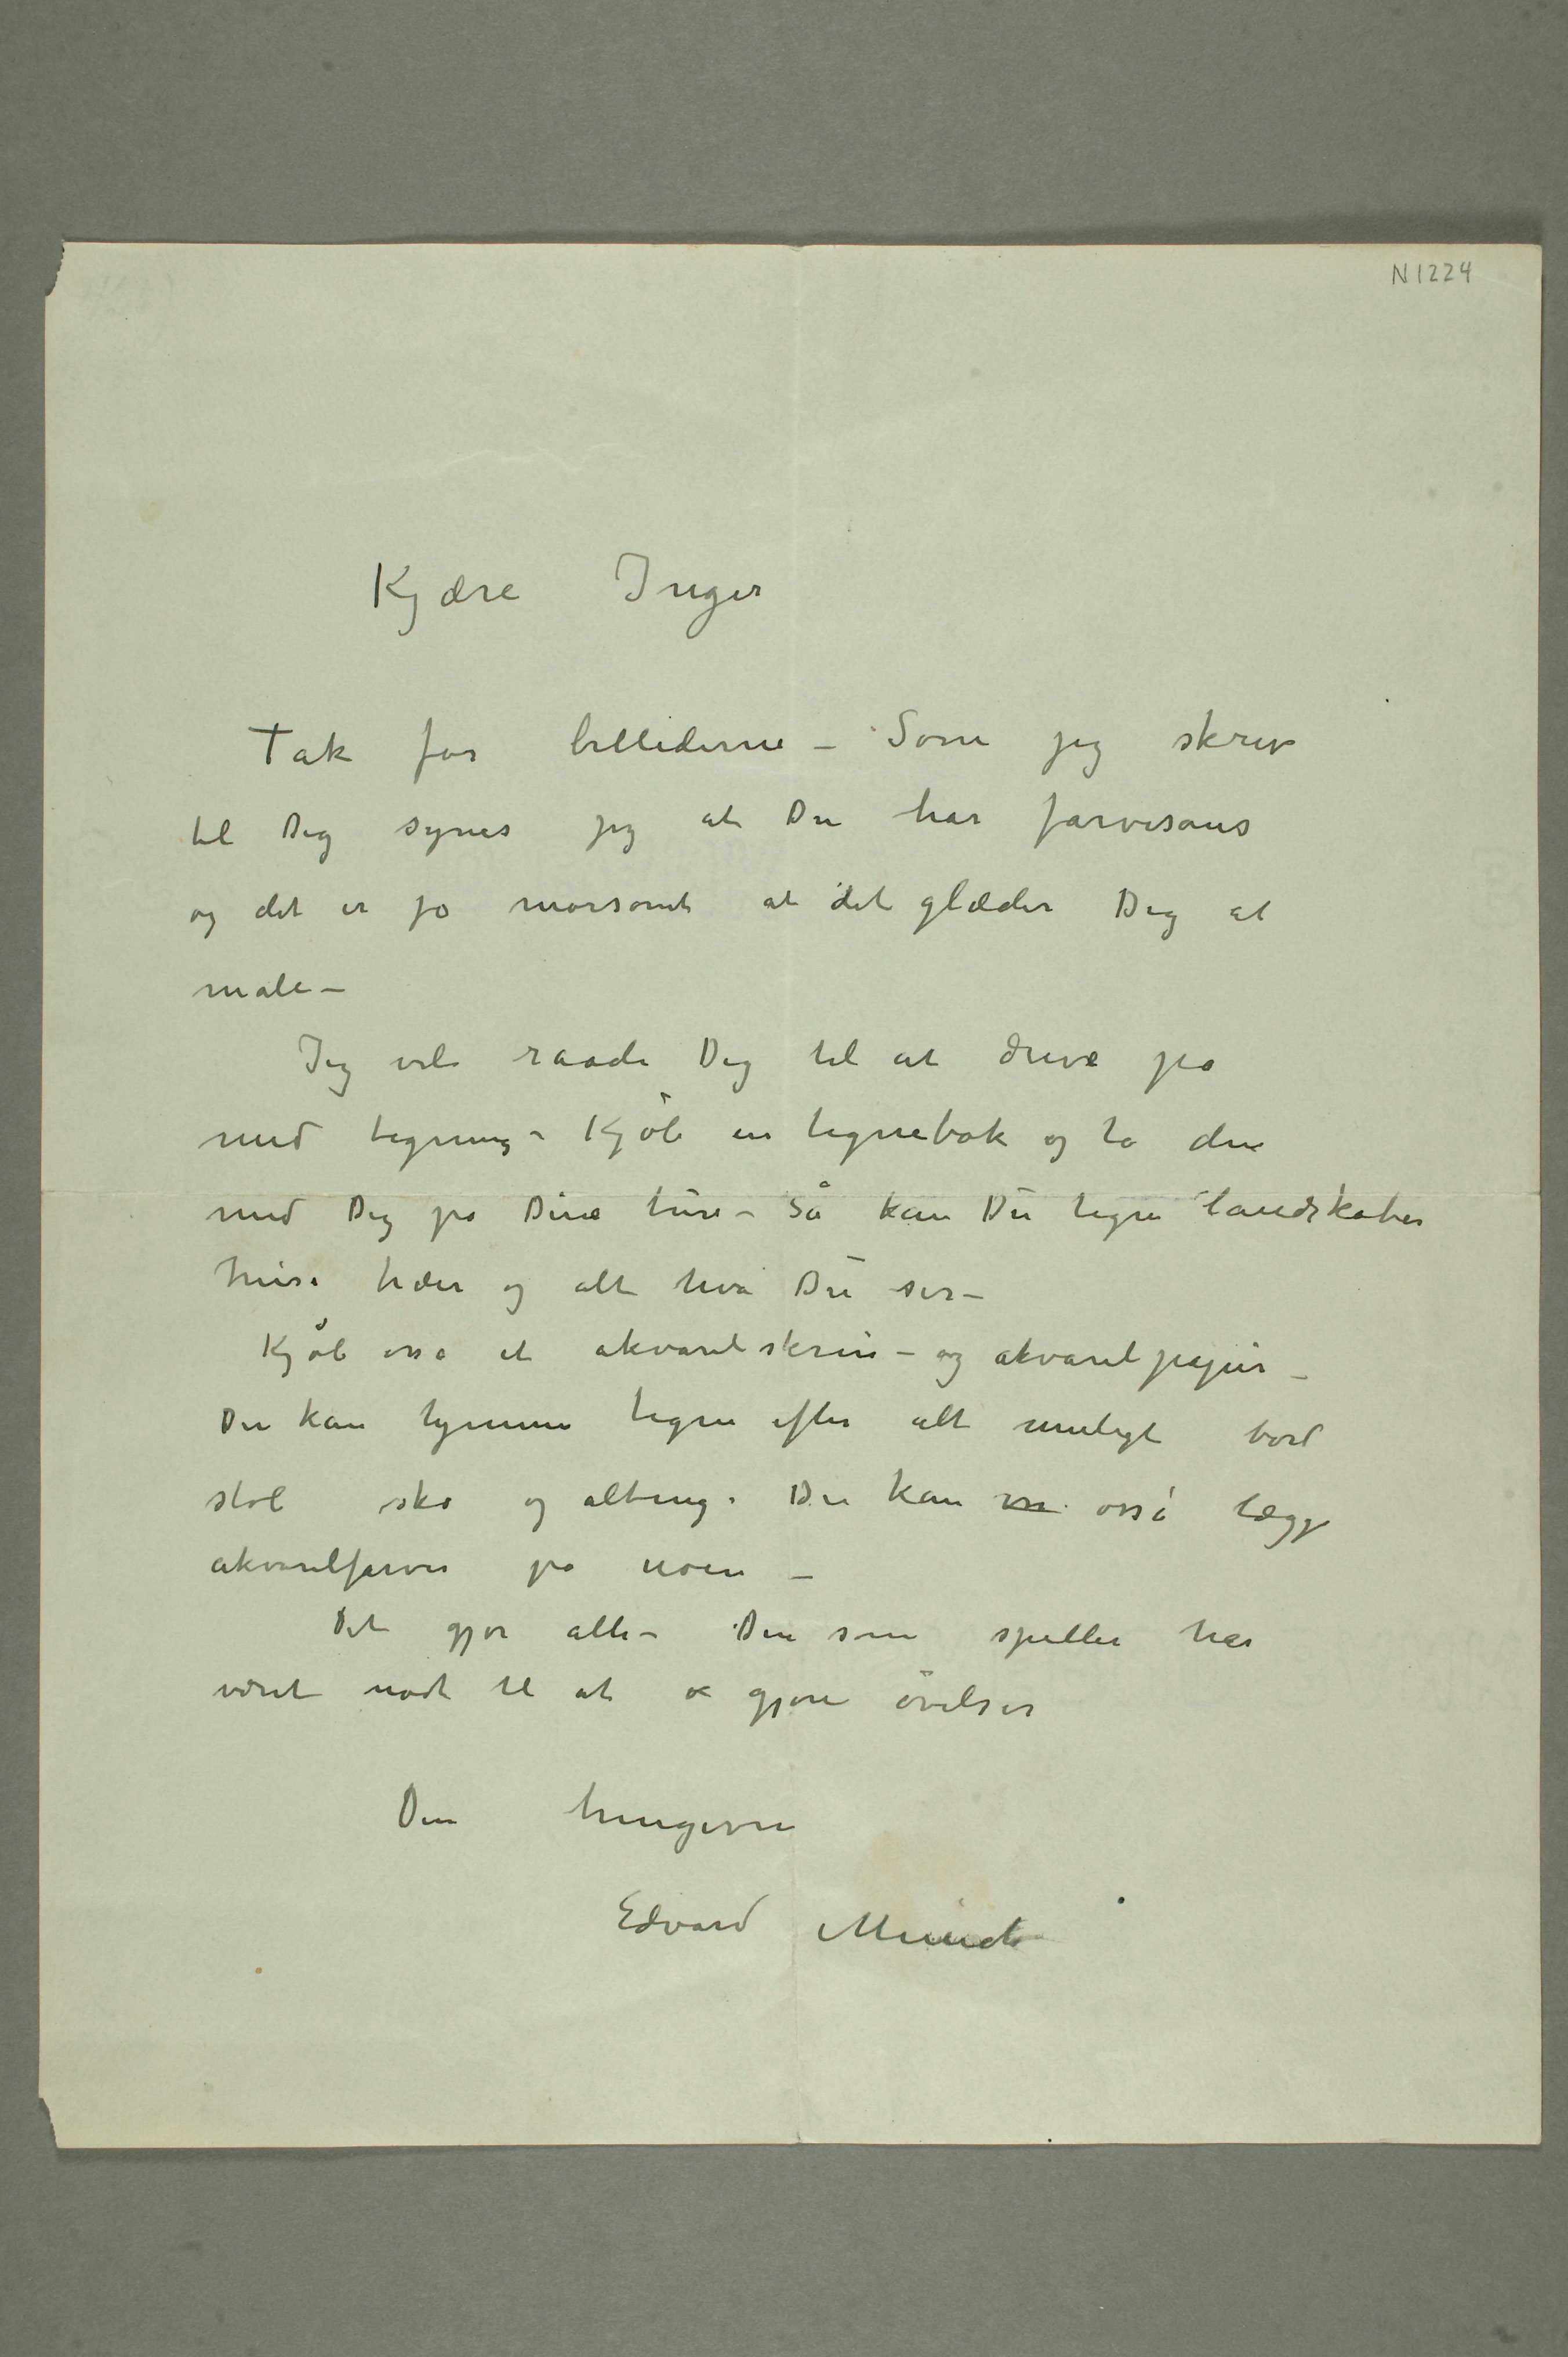 N1224
Kjære Inger
Tak for billederne – Som jeg skrev
til Dig synes jeg at Du har farvesans
og det er jo morsomt at det glæder Dig at
male –
Jeg vil raade Dig til at drive på
med tegning – Kjøb en tegnebok og ta den
med Dig på Dine ture – Så kan Du tegne landskaber
huse trær og alt hva Du ser –
Kjøb osså et akvarelskrin – og akvarelpapir –
Du kan hjemme tegne efter alt muligt bord
stol sko og alting. Du kan osså lægge
akvarelfarver på noen –
Det gjør alle – Den som spiller har
været nødt til at gjøre øvelser
Din hengivne
Edvard Munch